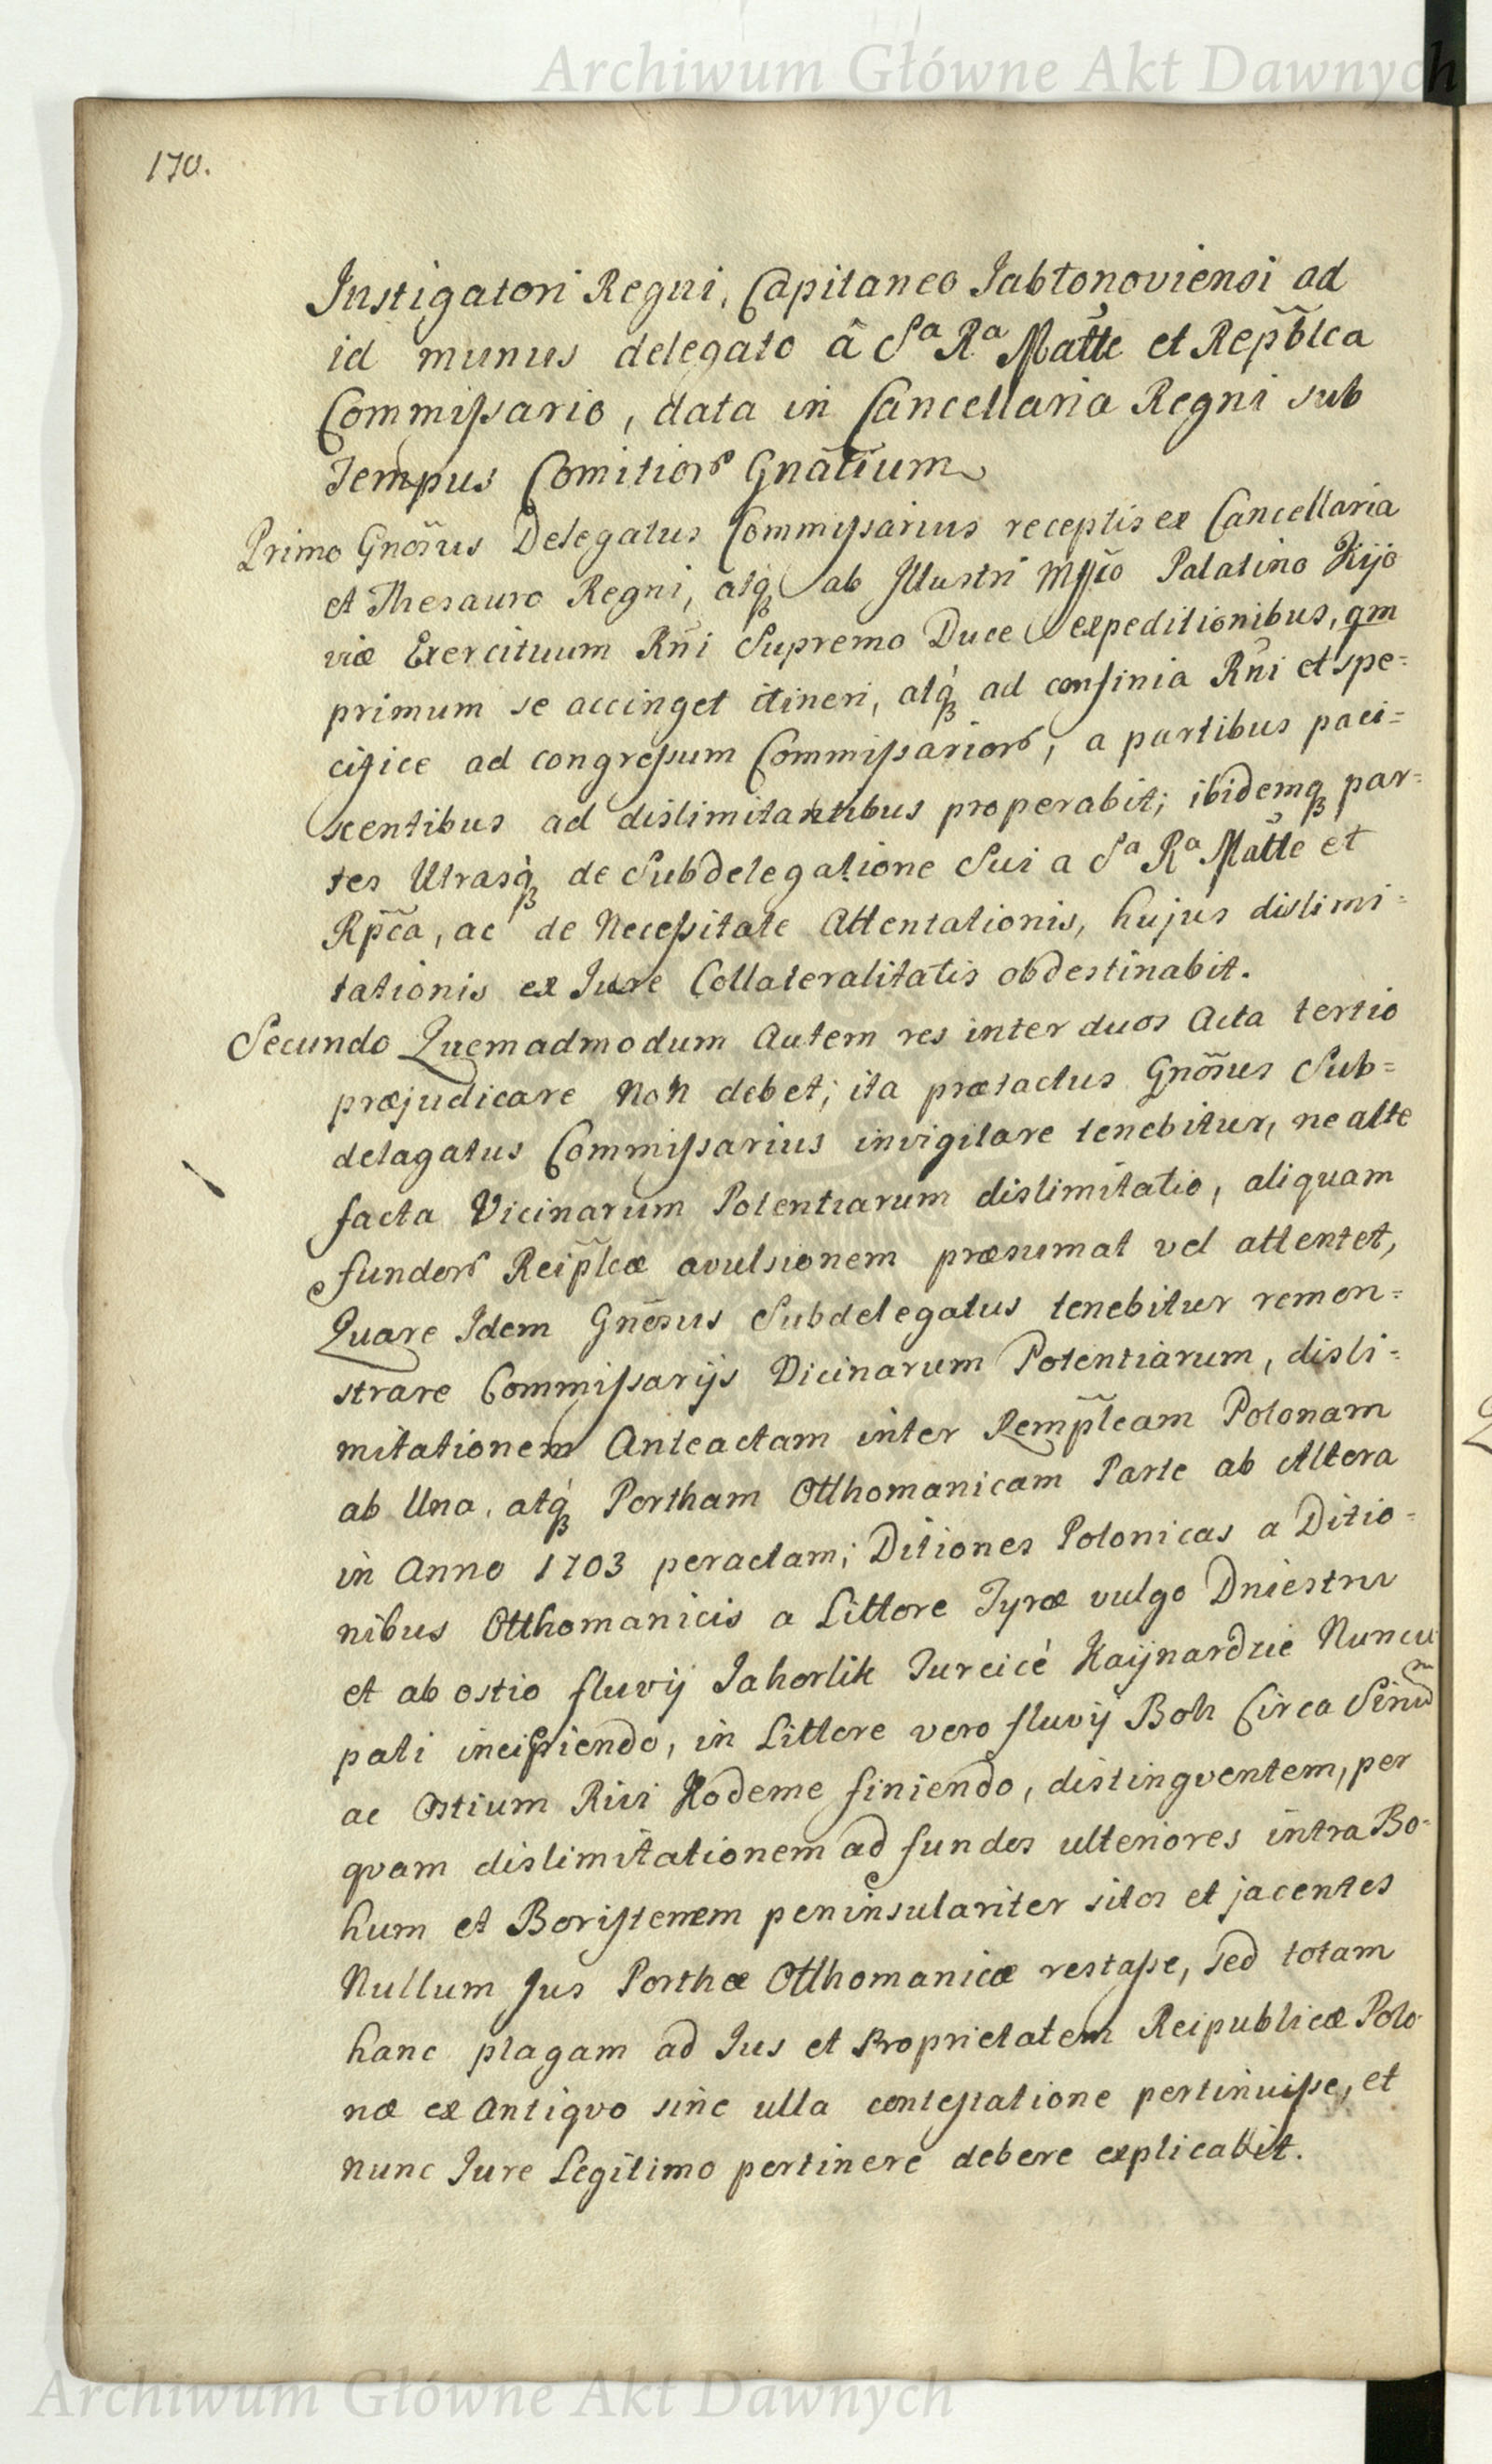 Archiwum Główne Akt Dawnych
170.
Instigatori Regni, Capitaneo Jabłonoviensi ad
id munus delegato â Sa Ra Matte et Repb̃lca
Commissario, data in Cancellaria Regni sub
Tempus Comitior Gnãlium
Primo Gnõsus Delegatus Commissarius receptis ex Cancellaria
et Thesauro Regni, atq ab Illustri Mgco Palatino Kijo
viæ Exercituum Rñi Supremo Duce expeditionibus, qm
primum se accinget itineri, atq ad confinia Rñi et spe=
cifice ad congressum Commissarior, a partibus paci=
scentibus ad dislimitantibus properabit; ibidemq par=
tes Utrasq de Subdelegatione Sui a Sa Ra Matte et
Rp̃ca, ac de Necessitate Attentationis, hujus dislimi=
tationis ex Jure Collateralitatis obdestinabit.
Secundo Quemadmodum Autem res inter duos Acta tertio
præjudicare Non debet; ita prætactus Gnõsus Sub=
delagatus Commissarius invigilare tenebitur, ne alte
facta Vicinarum Potentiarum dislimitatio, aliquam
fundor Reip̃lcæ avulsionem præsumat vel attentet,
Quare Idem Gnõsus Subdelegatus tenebitur remon=
strare Commissarijs Vicinarum Potentiarum, disli=
mitationem Anteactam inter Remp̃lcam Polonam
ab Una, atq Portham Otthomanicam Parte ab Altera
in Anno 1703 peractam; Ditiones Polonicas a Ditio=
nibus Otthomanicis a Littore Tyræ vulgo Dniestru
et ab ostio fluvij Jahorlik Turcicé Kaijnardzie Nuncu
pati incipiendo, in Littore vero fluvij Boh Circa Sinũ
ac Ostium Rivi Kodeme finiendo, distingventem, per
qvam dislimitationem ad fundos ulteriores intra Bo=
hum et Boristenem peninsulariter sitos et jacentes
Nullum Jus Porthæ Otthomanicæ restasse, sed totam
hanc plagam ad Jus et Proprietatem Reipublicæ Polo
næ ex Antiqvo sine ulla contestatione pertinuisse, et
nunc Jure Legitimo pertinere debere explicabit.
Archiwum Główne Akt Dawnych